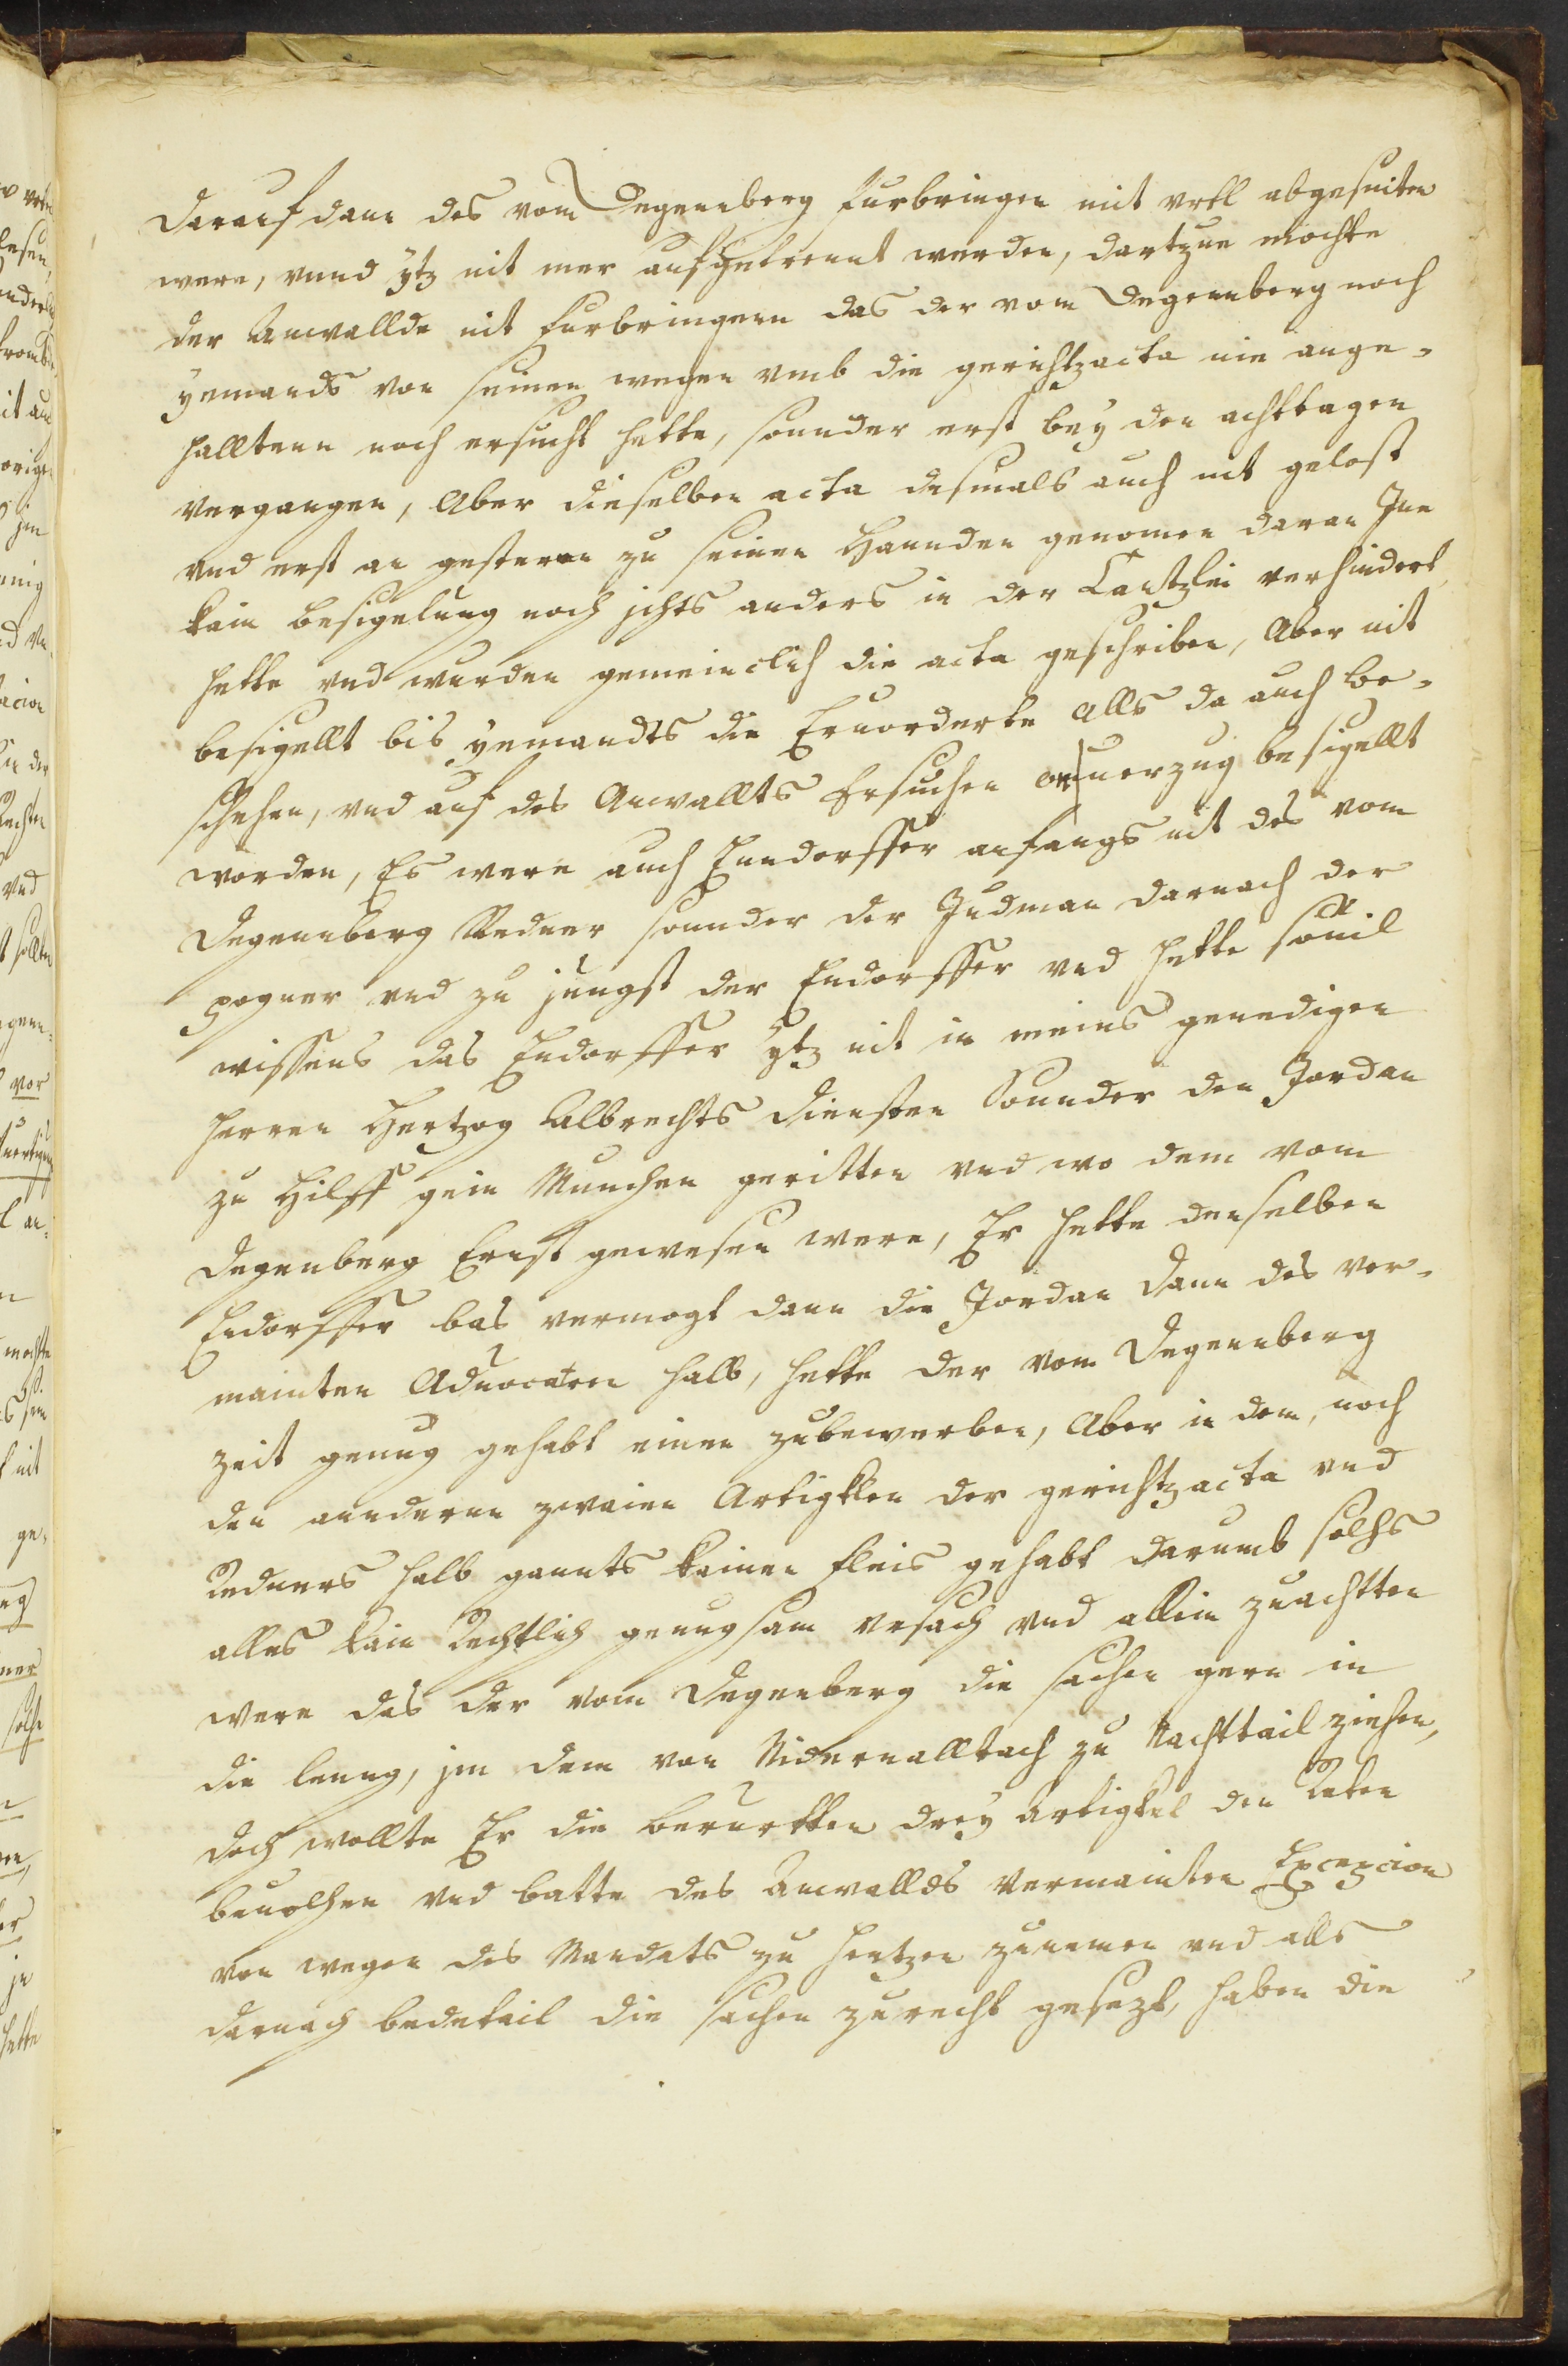 darauf dann des vom Degennberg furbringen mit vrtl abgesniten
were, vnnd ytz nit mer aufgetrennt werden, dartzue mochte
der Anwallde nit furbringenn das der vom Degennberg noch
yemands von seinen wegen vmb die gerichtzacta nie ange-
halltenn noch ersucht hette, sonnder erst bey den achttagen
vergangen, Aber dieselben acta desmals auch nit gelost
vnd erst an gesteren zu seinen Hannden genomen daran Jne
kain besigelung noch ichts anders in der Cantzlei verhindert
hette vnd wurden gemeinclich die acta geschriben, Aber nit
besigellt bis yemandts die Eruorderte alls da auch be-
schehen, vnd auf des Anwallts Ersuchen on uerzug besigellt
worden, Es were auch Enndorffer anfangs nit des vom
Degennberg Redner sonnder der Judman darnach der
pogner vnd zu jungst der Endorffer vnd hette souil
wissens das Endorffer ytz nit in meins genedigen
Herren Hertzog Albrechts diensten Sonnder den Jordan
zu Hilff gein Munchen geritten vnd wo dem vom
Degenberg Ernst gewesen were, Er hette denselben
Endorffer bas vermogt dann die Jordan dann des ver-
mainten Aduocaten halb, hette der vom Degennberg
zeit genug gehabt einen zubewerben, Aber in dem, noch
den annderen zwaien Artigklen der gerichtzacta vnd
Redners halb gannts kainen fleis gehabt darumb solhs
alles kain Rechtlich genugsam vrsach vnd allein zuachtten
were das der vom Degenberg die sachen gern in
die lenng, jm dem von Nidernalltach zu Nachttail ziehen,
doch wollte Er die berurtten drey Artigkel den Räten
beuolhen vnd batte des Anwallds vermainten Excepcion
von wegen des Mandats zu hertzen zunemen vnd alls
darnach bedetail die sachen zurecht gesezt, haben die